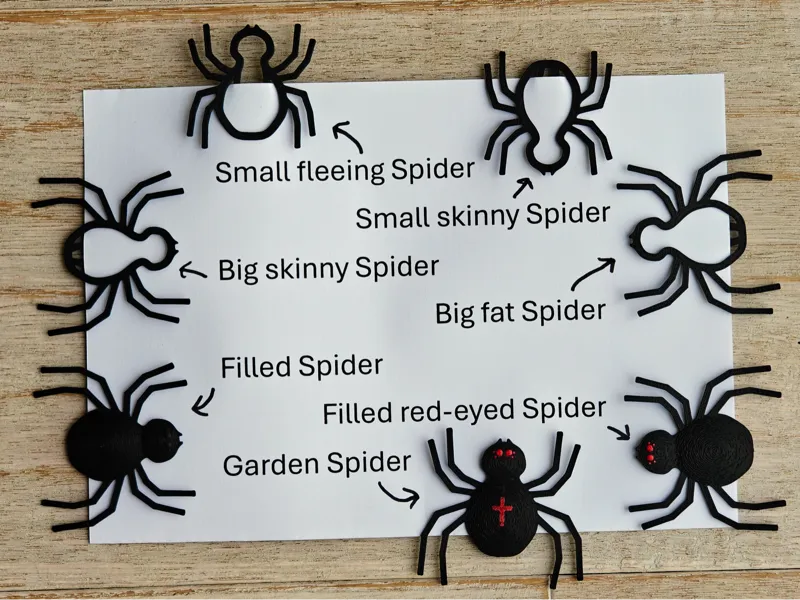 Small fleeing Spider
Small skinny Spider
Big skinny Spider
Big fat Spider
Filled Spider
Filled red-eyed Spider
Garden Spider